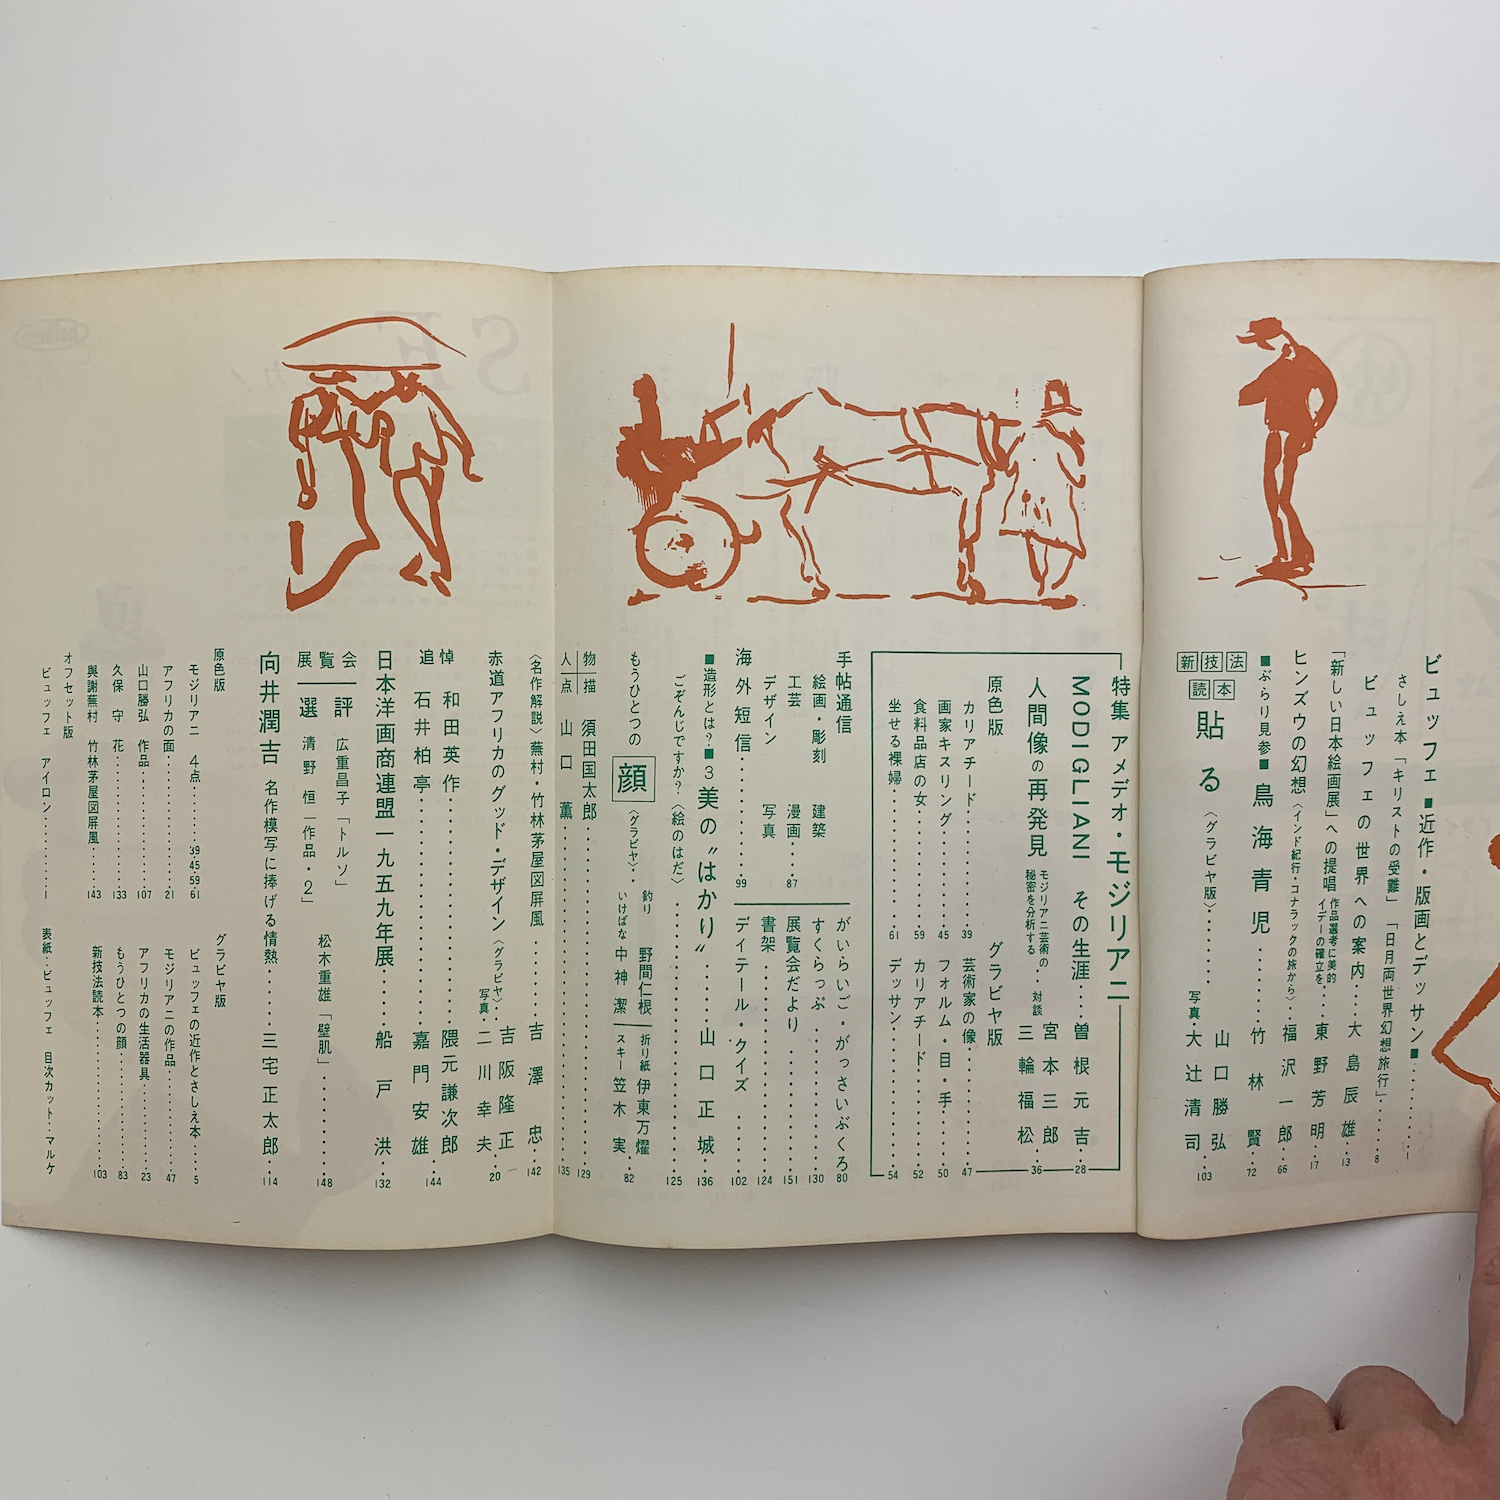 ビュッフェ ■近作・版画とデッサン■……1
さしえ本「キリストの受難」「日月両世界幻想旅行」……8
ビュッフェの世界への案内……大島辰雄…13
「新しい日本絵画展」への提唱 作品選考に美的イデーの確立を……東野芳明…17
ヒンズウの幻想〈インド紀行・コナラックの旅から〉…福沢一郎…66
■ぶらり見参■ 鳥海青児……竹林賢…72
新技法読本 貼る〈グラビヤ版〉……山口勝弘 写真・大辻清司…103
特集 アメデオ・モジリアニ
MODIGLIANI その生涯……曽根元吉…28
人間像の再発見 モジリアニ芸術の秘密を分析する・対談 宮本三郎 三輪福松…36
原色版
カリアチード……39
画家キスリング……45
食料品店の女……59
坐せる裸婦……61
グラビヤ版
芸術家の像……47
フォルム・目・手……50
カリアチード……52
デッサン……54
手帖通信
絵画・彫刻 建築
工芸 漫画…87
デザイン 写真
海外短信……99
がいらいご・がっさいぶくろ 80
すくらっぷ……130
展覧会だより……151
書架……124
デイテール・クイズ……102
■造形とは?■3 美の〝はかり〟……山口正城…136
ごぞんじですか?〈絵のはだ〉……125
もうひとつの 顔〈グラビヤ〉…釣り 野間仁根 いけばな 中神潔 折り紙 伊東万燿 スキー 笠木実 82
物描 須田国太郎……129
人点 山口薫……135
〈名作解説〉蕪村・竹林茅屋図屏風……吉澤忠…142
赤道アフリカのグッド・デザイン〈グラビヤ〉…吉阪隆正 写真・二川幸夫…20
追悼 和田英作……隈元謙次郎
石井柏亭……嘉門安雄
144
日本洋画商連盟一九五九年展……船戸洪…132
展覧会評 広重昌子「トルソ」
選 清野恒「作品・2」 松木重雄「壁肌」……148
向井潤吉 名作模写に捧げる情熱……三宅正太郎…114
原色版
モジリアニ 4点……39・45・59・61
アフリカの面……21
山口勝弘 作品……107
久保守 花……133
與謝蕪村 竹林茅屋図屏風……143
オフセット版
ビュッフェ アイロン……1
グラビヤ版
ビュッフェの近作とさしえ本……5
モジリアニの作品……47
アフリカの生活器具……23
もうひとつの顔……83
新技法読本……103
表紙・ビュッフェ 目次カット・マルケ